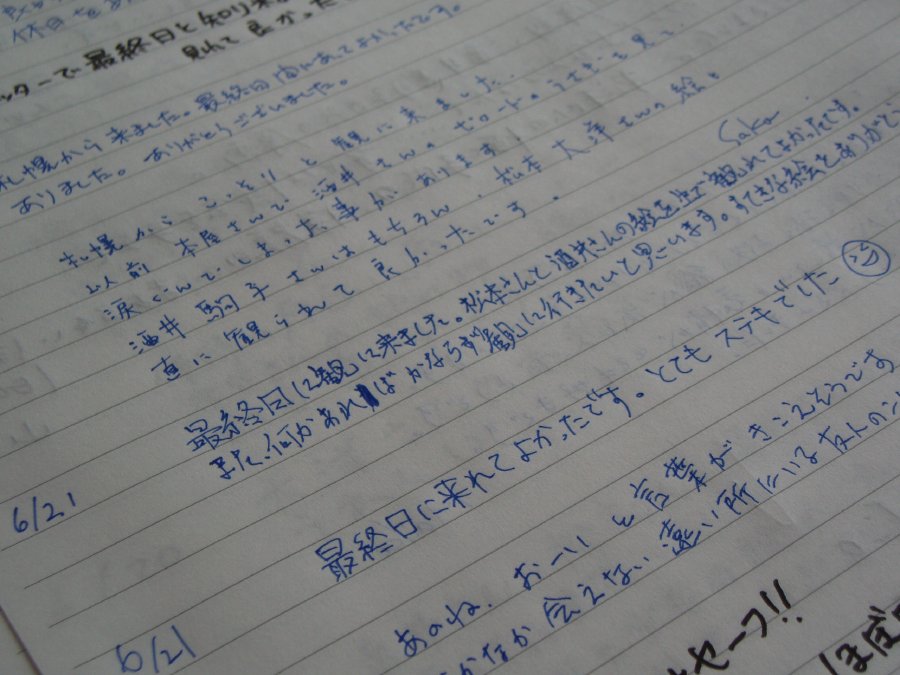 ッターで最終日と知り
見れて良かった
札幌から来ました。最終日間にあってよかったです。
ありました。ありがとうございました。
札幌からこっそりと観に来ました.
以前本屋さんで酒井さんの
涙ぐんでしまった事があります.
酒井駒子さんはもちろん、松本大洋さんの絵も
直に観られて良かったです.
Saka
最終日に観に来ました。松本さんと酒井さんの絵を生で観れてよかったです。
また、何かあればかならず観に行きたいと思います。すてきな絵をありがとう
6/21
最終日に来れてよかったです。とてもステキでした
6/21
あのね、おーいと言葉がきこえそうです
なかなか会えない遠い所にいる友人の
セーフ!!
ほぼ